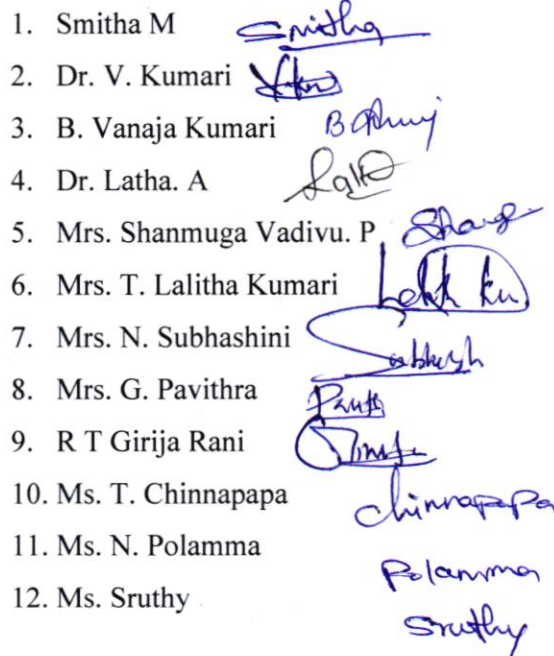 1. Smitha M Smitha
2. Dr. V. Kumari
3. B. Vanaja Kumari
4. Dr. Latha. A
5. Mrs. Shanmuga Vadivu. P
6. Mrs. T. Lalitha Kumari
7. Mrs. N. Subhashini
8. Mrs. G. Pavithra
9. R T Girija Rani
10. Ms. T. Chinnapapa chinnapapa
11. Ms. N. Polamma
Polamma
12. Ms. Sruthy
Sruthy